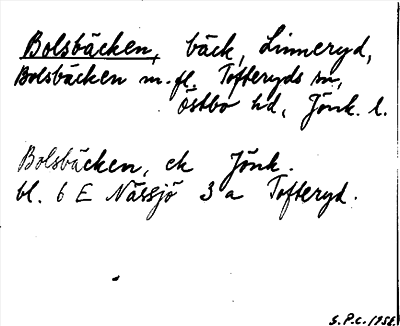 Bolsbäcken, bäck, Linneryd,
Bolsbäcken m. fl. Tofteryds sn,
Östbo hd, Jönk. l.
Bolsbäcken, ek Jönk.
bl. 6 E Nässjö 3 a Tofteryd.
S.P.C. 1958.